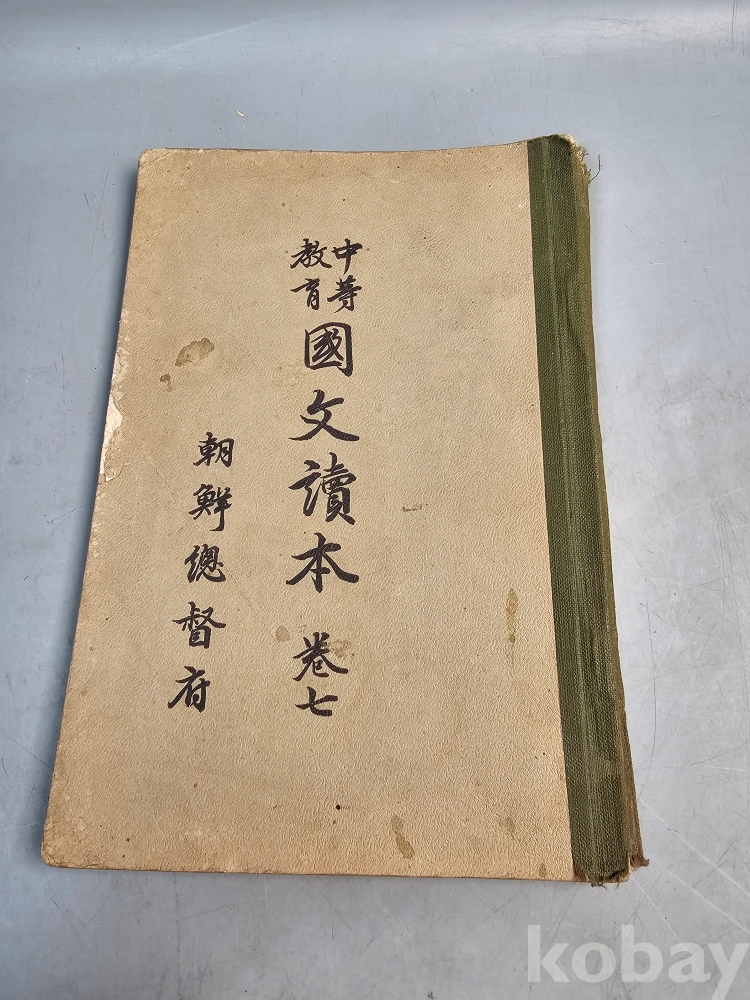 中等
教育
國文讀本 卷七
朝鮮總督府
kobay